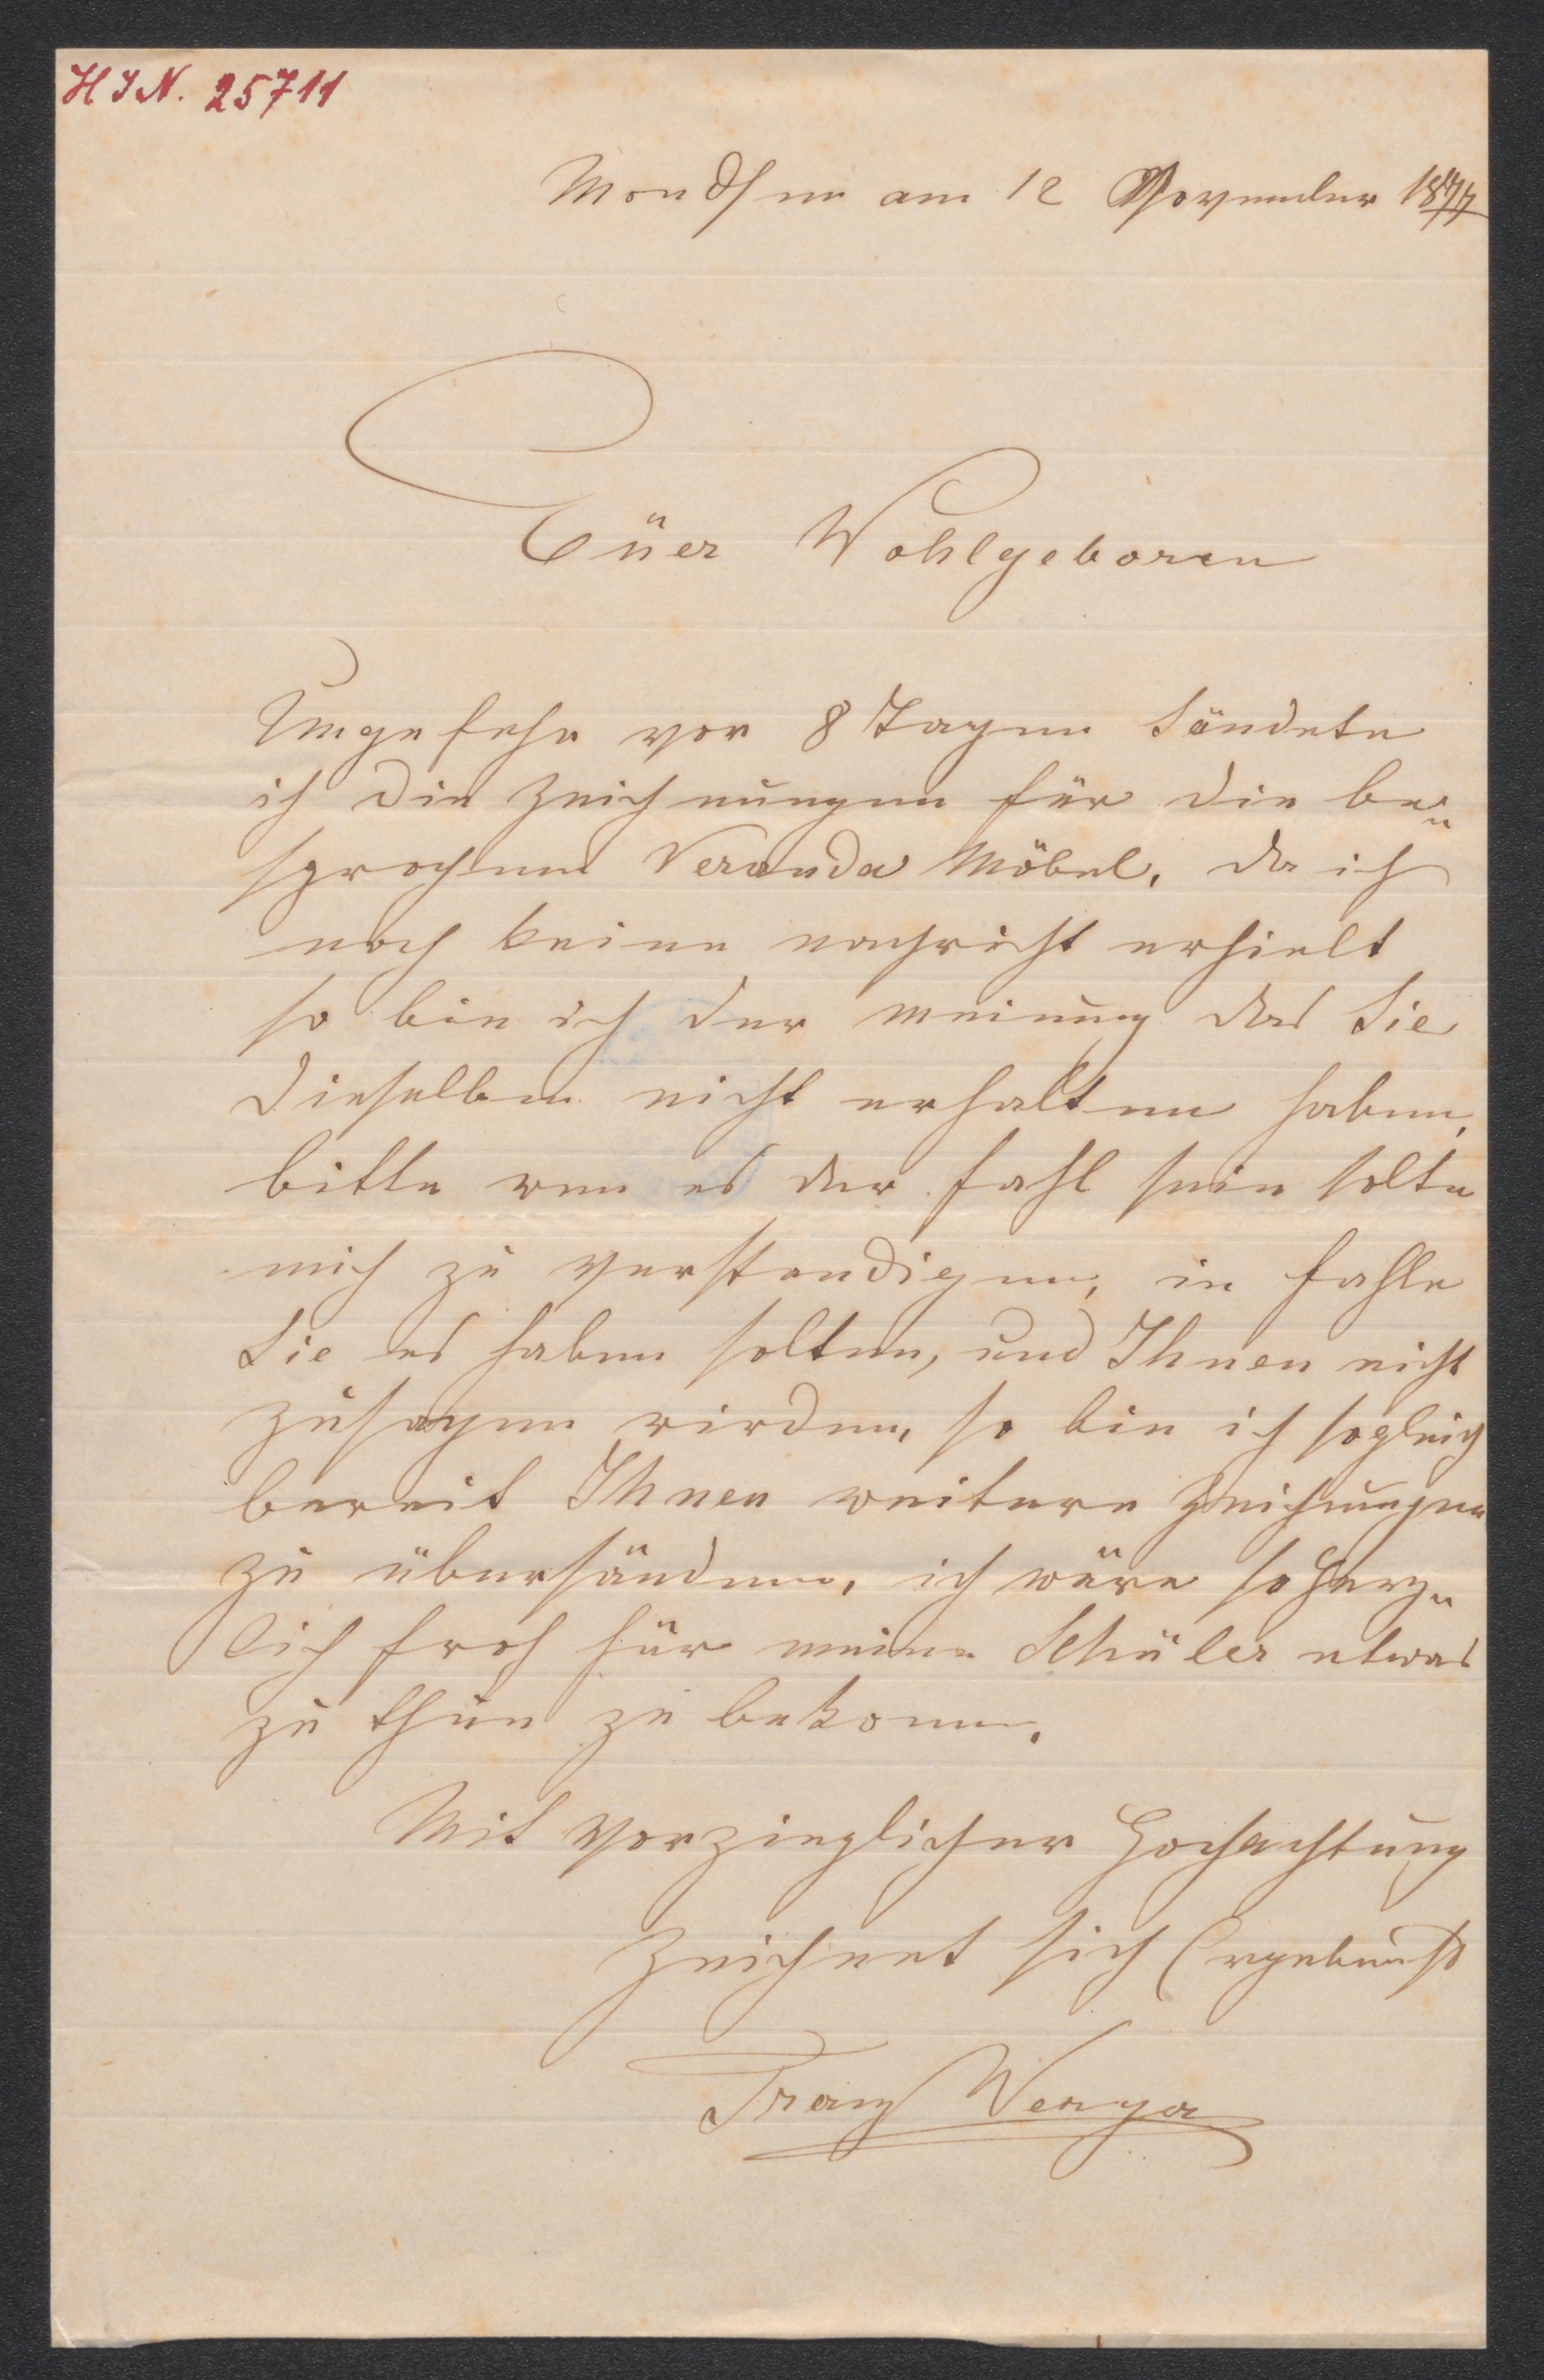 HIN. 25711
Mondsee am 12 November 1877
Eüer Wohlgeboren
Ungefehr vor 8 Tagen sändete
ich die Zeichnungen für die be„
sprochene Veranda Möbel, da ich
noch keine nachricht erhielt
so bin ich der meinung das Sie
dieselben nicht erhalten haben,
bitte wen es der fahl sein solte
mich zu verstendigen, in fahle
Sie es haben solten, und Ihnen nicht
zusagen wirden, so bin ich sogleich
bereit Ihnen weitere Zeichnungen
zu übersänden, ich wäre so herz„
lich froh für meine Schüler etwas
zu thun zu bekomen.
Mit vorzieglicher Hochachtung
Zeichnet sich Ergebenst
Franz Wenga